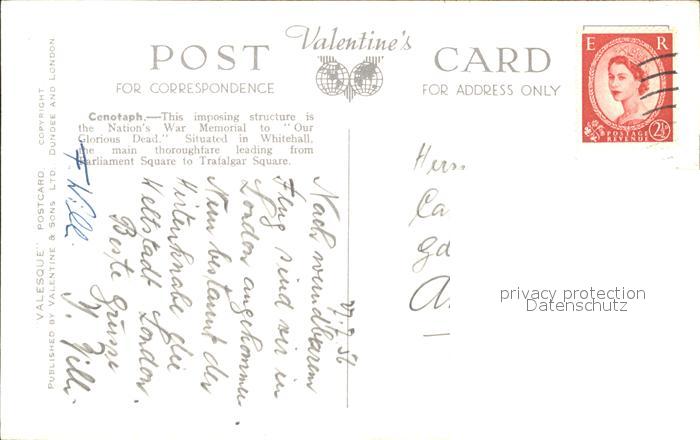 POST Valentine's CARD
FOR CORRESPONDENCE
FOR ADDRESS ONLY
E R
POSTAGE
REVENUE
2½
Cenotaph.—This imposing structure is
the Nation's War Memorial to "Our
Glorious Dead." Situated in Whitehall,
the main thoroughfare leading from
Parliament Square to Trafalgar Square.
"VALESQUE" POSTCARD. COPYRIGHT
PUBLISHED BY VALENTINE & SONS LTD. DUNDEE AND LONDON.
Nach wundbarem
Flug sind wir in
London angekommen.
Nun bestaunt der
Hirtenknabe die
Weltstadt London.
Beste Grüsse
Herrn
Ca
A
privacy protection
Datenschutz